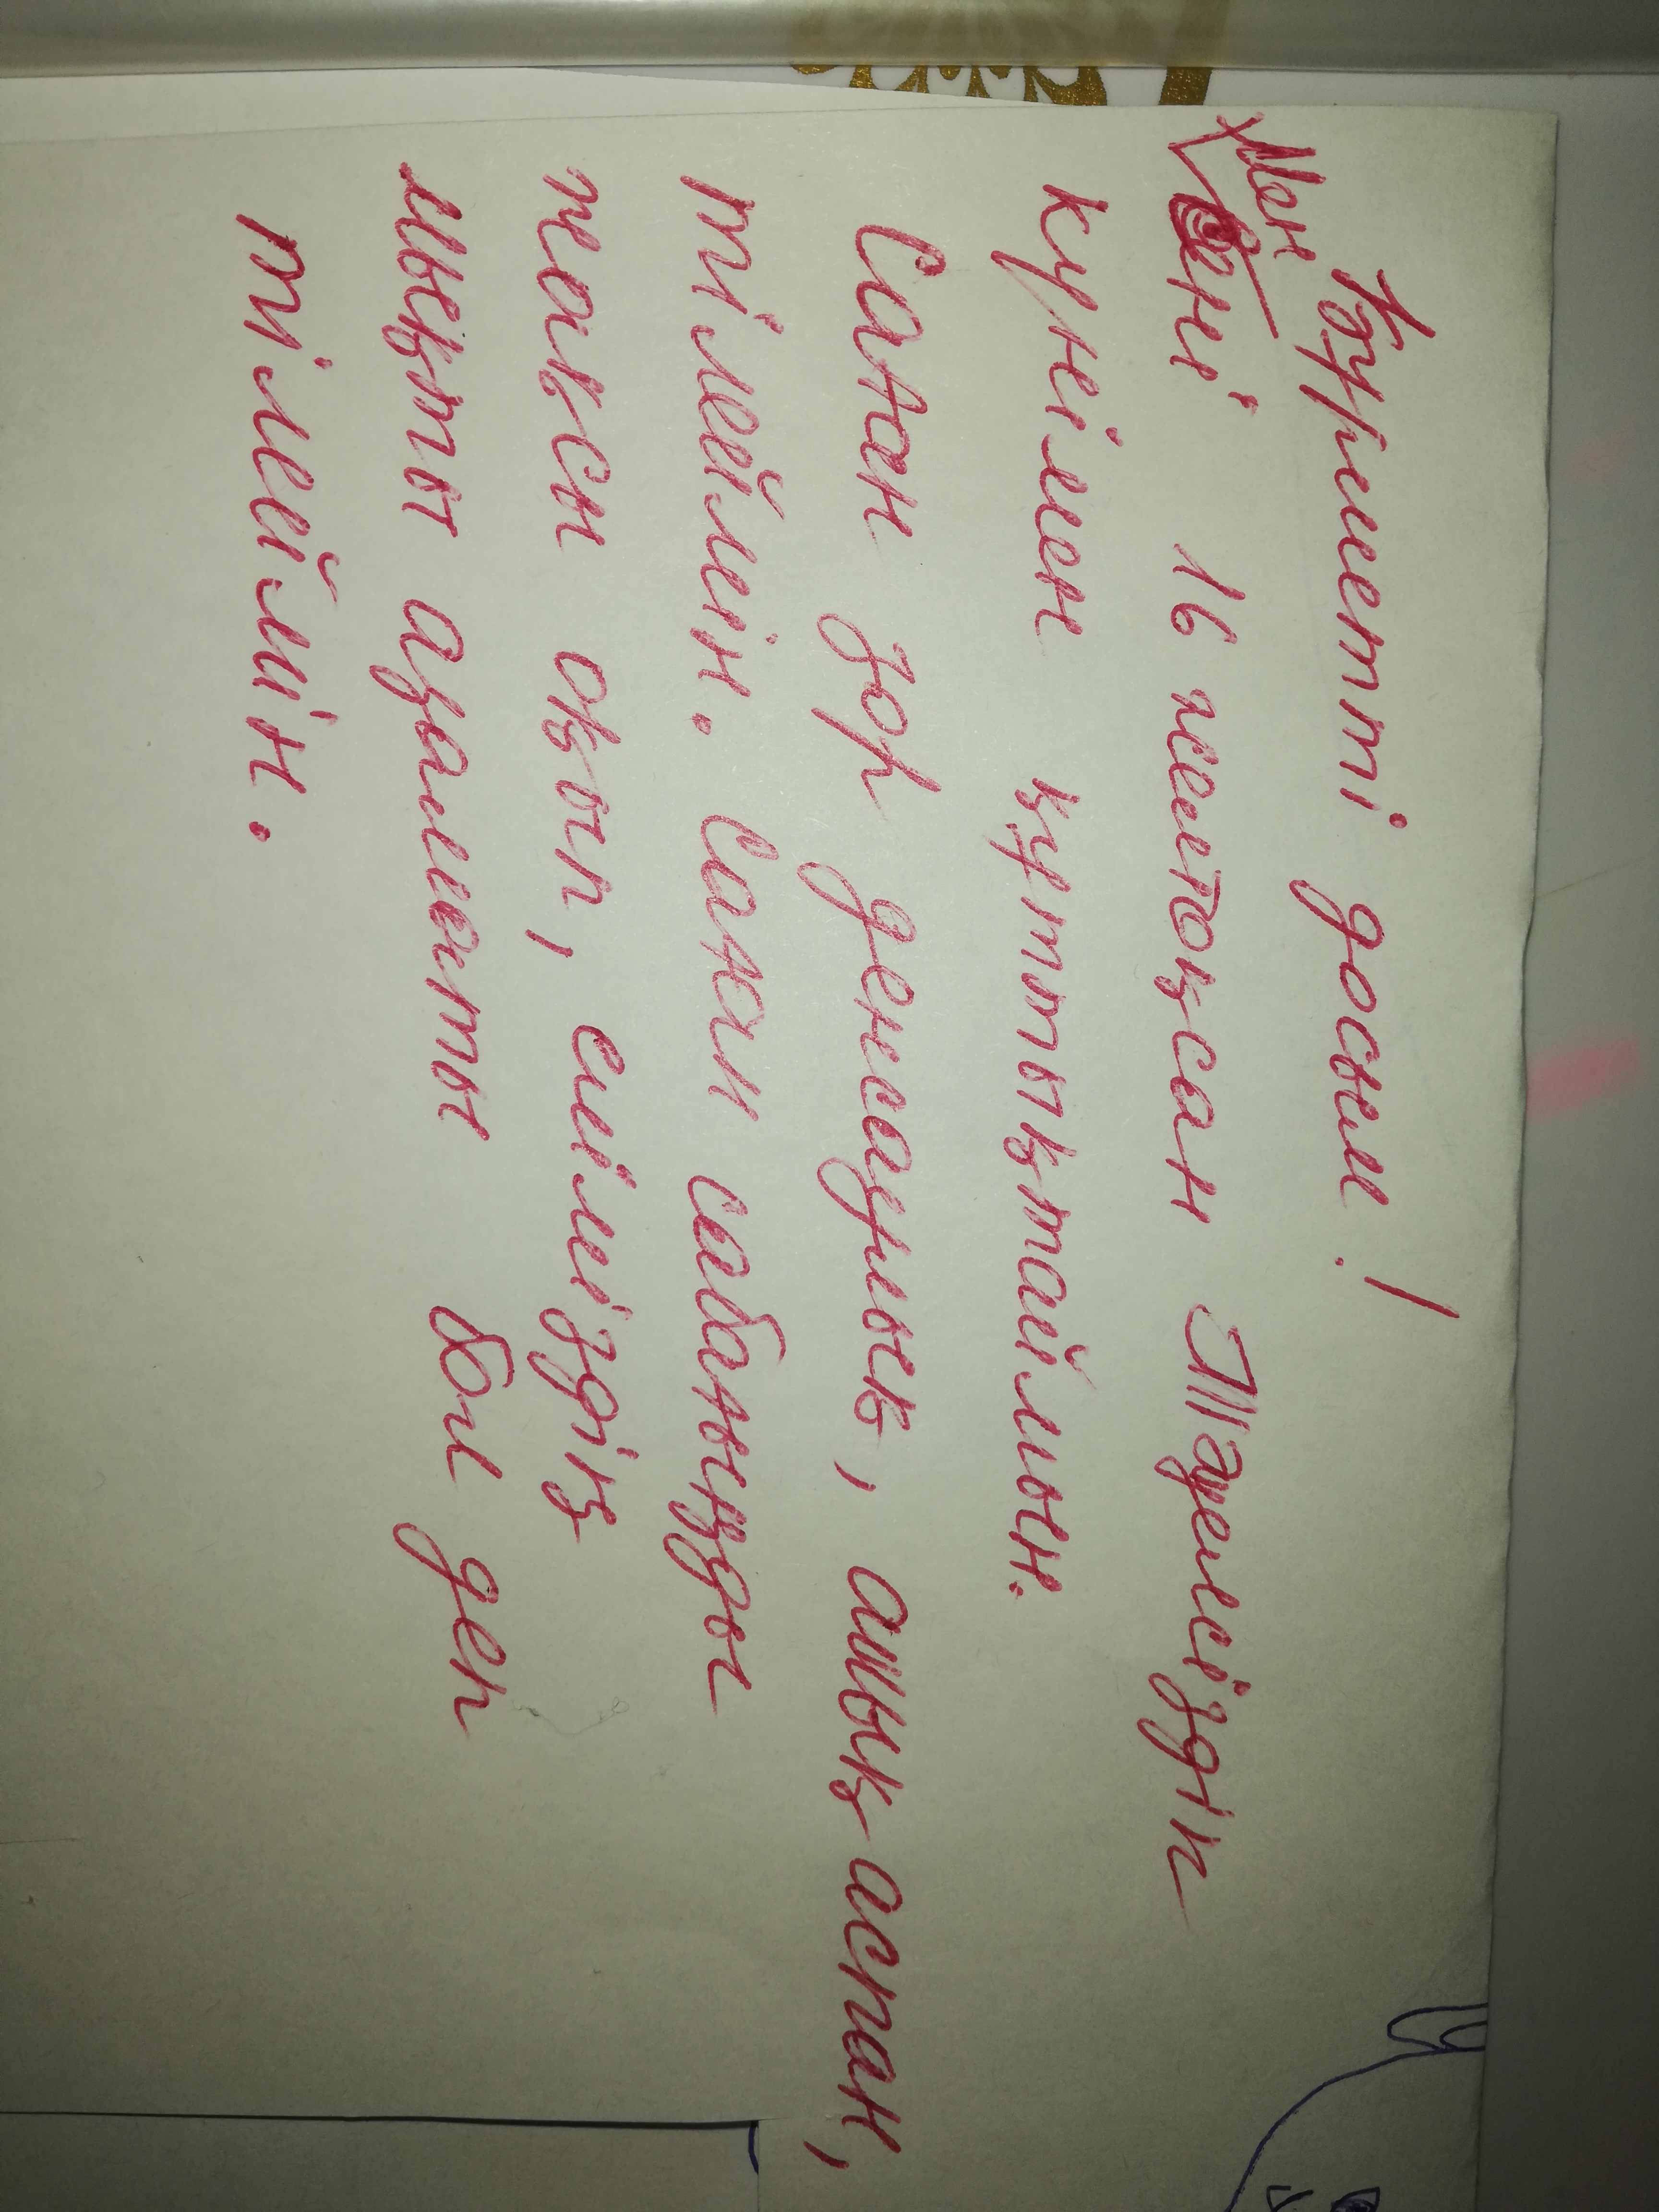 Құрметті досым!
Мен
сені 16 желтоқсан Тәуелсіздік
күнімен құттықтаймын.
Саған зор денсаулық, ашық аспан,
тілеймін. Саған сабағыңды
жақсы оқып, еліміздің
мықты азаматы бол деп
тілеймін.